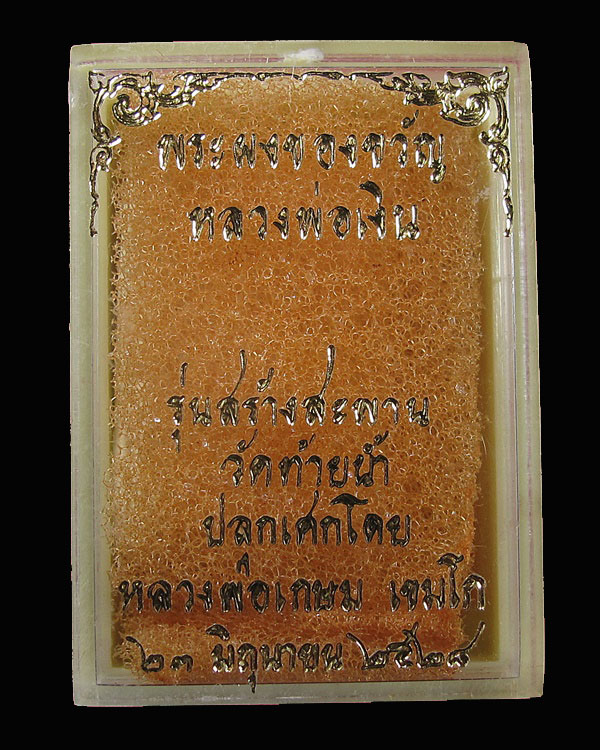 พระผงของขวัญ
หลวงพ่อเงิน
รุ่นสร้างสะพาน
วัดท้ายน้ำ
ปลุกเศกโดย
หลวงพ่อเกษม เขมโก
๒๓ มิถุนายน ๒๕๒๘